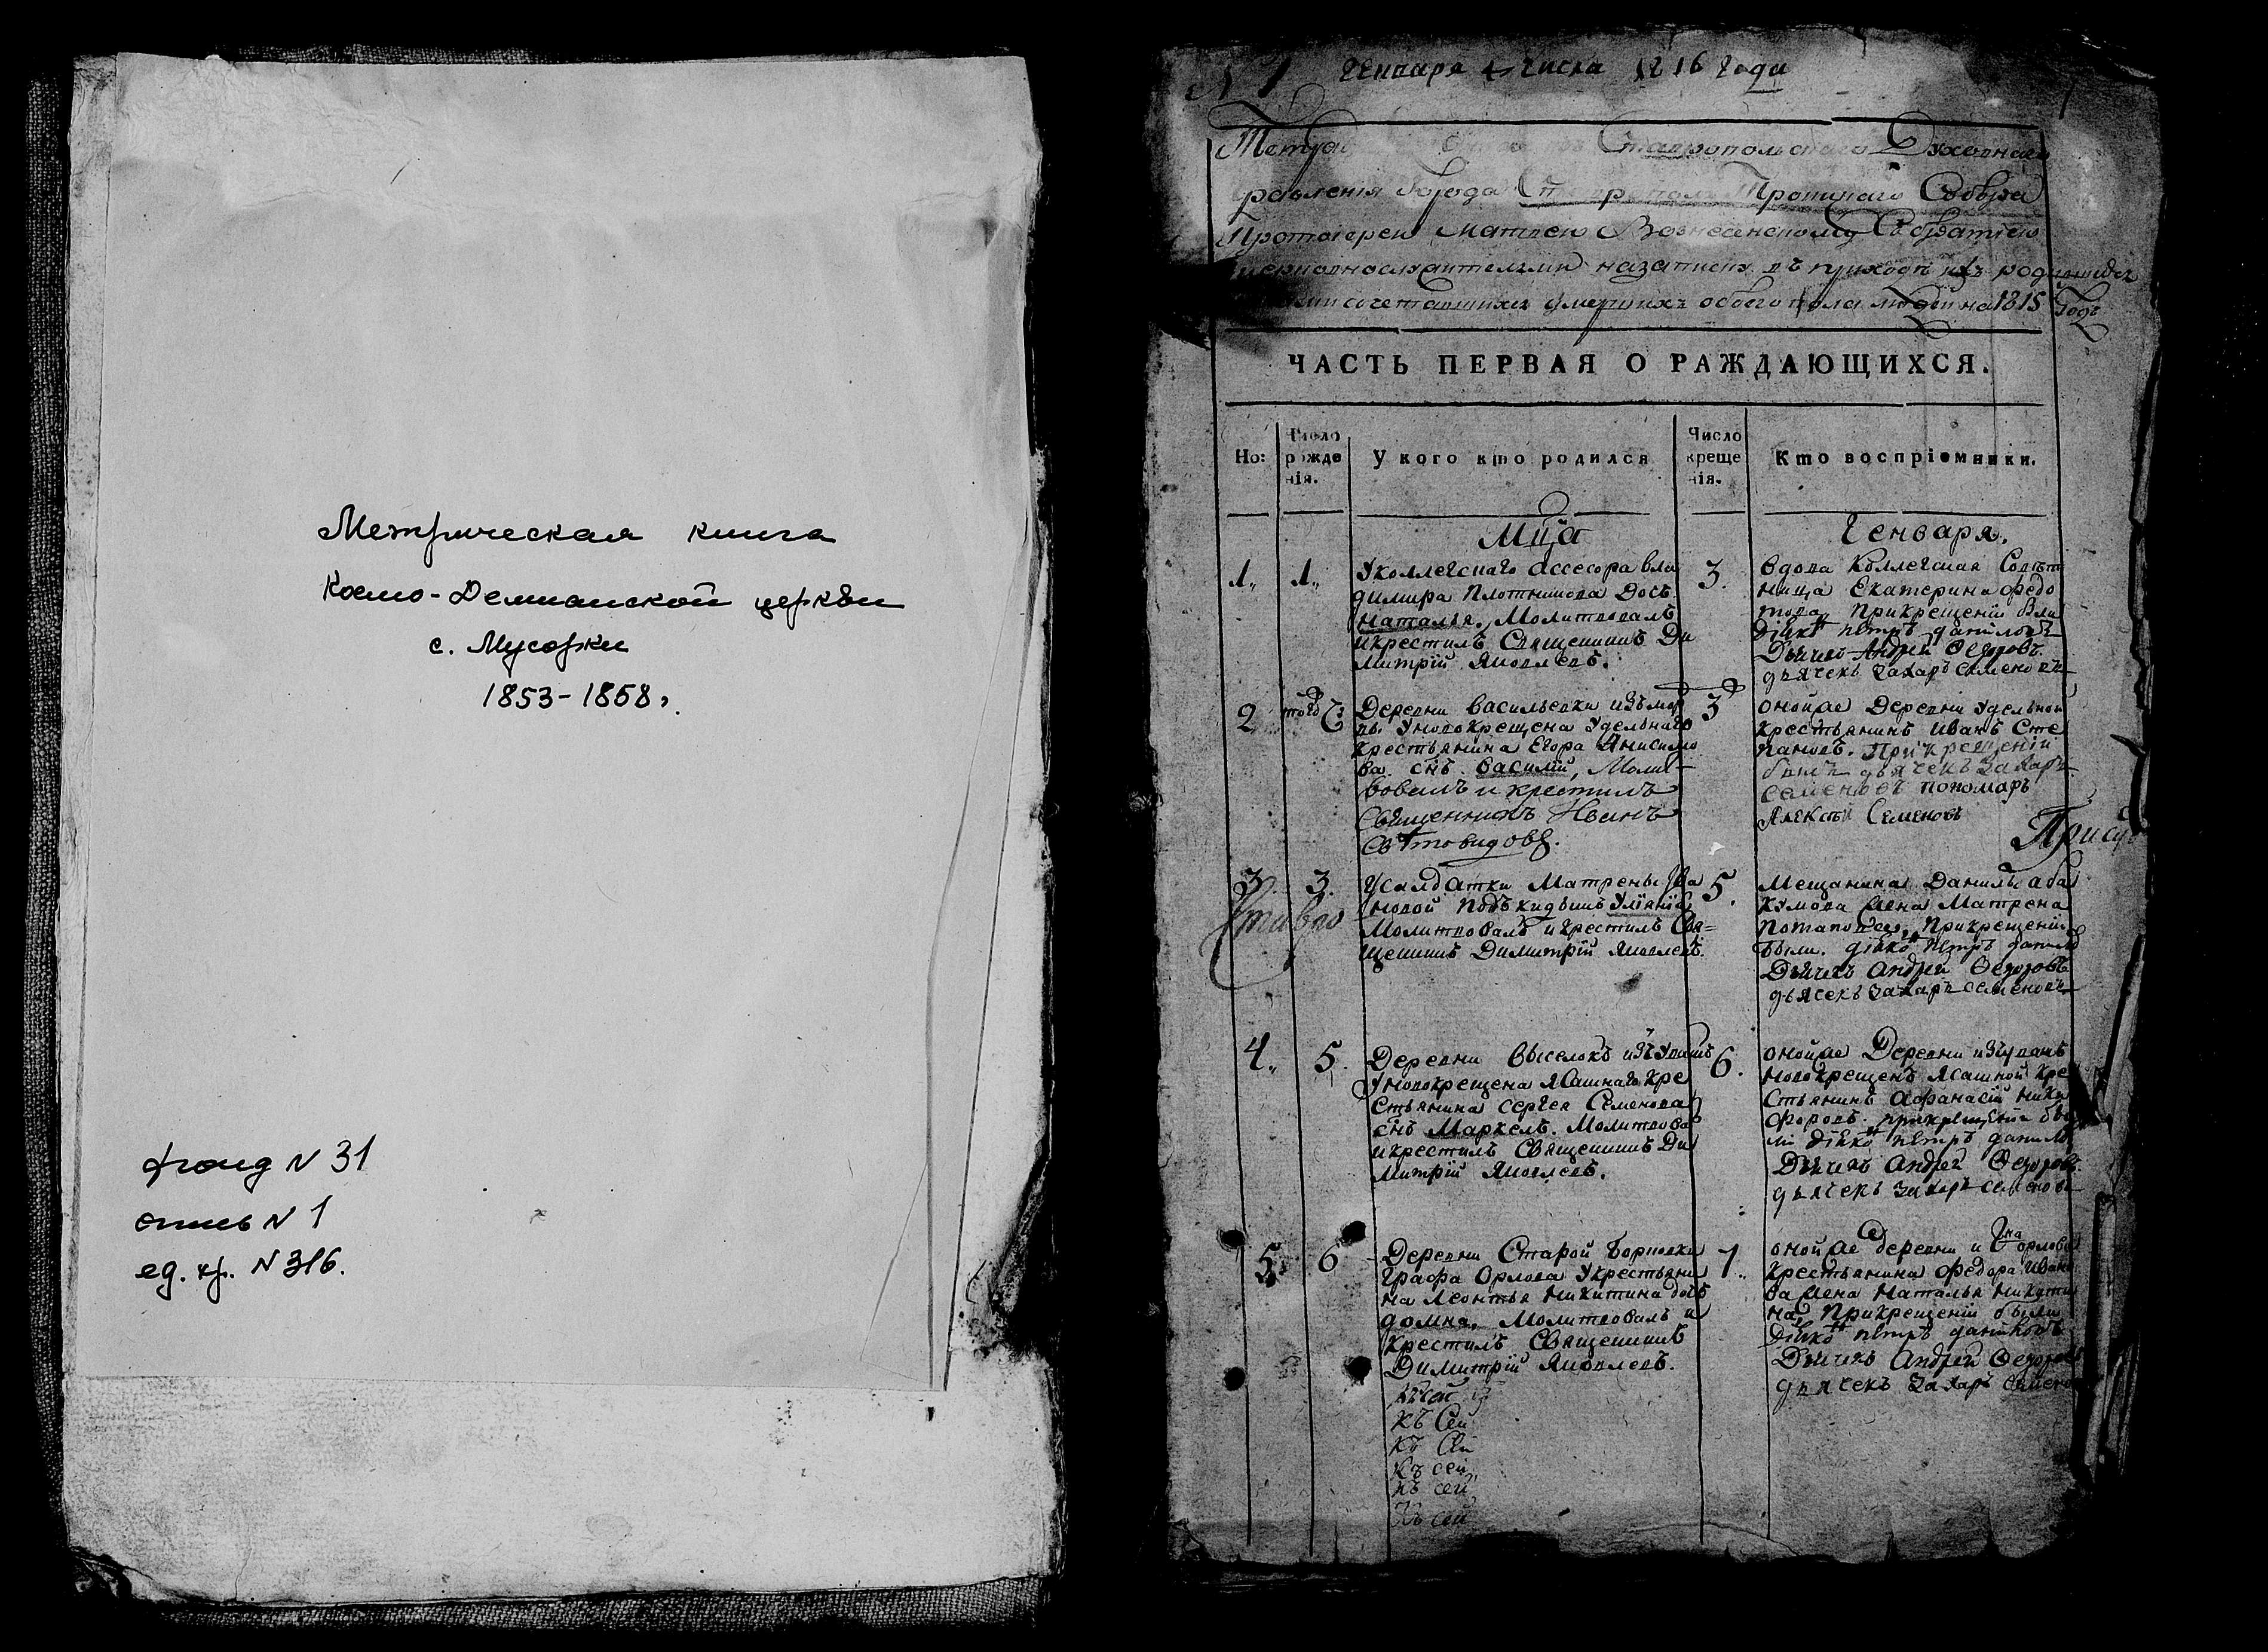 Метрическая книга
Космо-Демианской церкви
с. Мусорки
1853-1858г.
фонд N 31
опись N 1
ед. хр. N 316.
N 1 Генваря 4 числа 1816 года
Ставропольскаго Духовнаго
города Троицкаго Собора
Протоіерею Матвею Вознесенскому Съ братіею
на записку въ приходѣ ихъ
умершихъ обоего пола людей на 1815 Годъ
ЧАСТЬ ПЕРВАЯ О РАЖДАЮЩИХСЯ.
Но:
Число рожде нія.
У кого кто родился
Число креще нія.
Кто воспріемники.
Мца
Генваря.
1.
1.
Уколлегскаго Ассесора Вла
димира Плотникова Дочь
Наталья. Молитвовалъ
и крестилъ Священникъ Ди
митрій Яковлевъ.
3.
вдова Коллегская Совѣт
ница Екатерина Федо
това. Прикрещеніи были
Петръ Даниловъ
Дьячекъ Андрей Ѳедоровъ.
дьячекъ Захаръ Семеновъ
2
того
Деревни Васильевки изъ мор
двы Уновокрещена Удельнаго
крестьянина Егора Анисимо
ва. снъ. Василій, Молит
вовалъ и крестилъ
Священникъ Иванъ
Свѣтовидовъ.
3
оной же Деревни Удельной
крестьянинъ Иванъ Сте
пановъ. При крещеніи
былъ дьячекъ Захаръ
Семеновъ пономарь
Алексѣй Семеновъ
3.
3.
Усалдатки Матрены Ива
новой подъкидышъ Уліянія
Молитвовалъ и крестилъ Свя=
щенникъ Димитрій Яковлевъ.
5.
Мещанина Данилы Аба
кумова жена Матрена
Потаповна. Прикрещеніи
были. Петръ Данилов
Дьячекъ Андрей Ѳедоровъ
дьячекъ Захаръ Семеновъ
4.
5.
Деревни Выселокъ изъ Чувашъ
Уновокрещена ясашнаго кре
стьянина Сергея Семенова
снъ Маркелъ. Молитвова
и крестилъ Священникъ Ди
митрій Яковлевъ.
6.
оной же Деревни изъ Чувашъ
новокрещенъ ясашной кре
стьянинъ Афанасій Ники
форовъ. прикрещеніи бы
ли Петръ Данилов
Дьячекъ Андрей Ѳедоровъ.
дьячекъ Захаръ Семеновъ
5
6
Деревни Старой Борковки
Графа Орлова Укрестьяни
на Леонтья Никитина дочь
Домна. Молитвовалъ и
крестилъ Священникъ
Димитрій Яковлевъ.
7.
оной же деревни и Гна Орлова
крестьянина Федора Ивано
ва жена Наталья Никити
на, Прикрещеніи были
Петръ Даниловъ
Дьячекъ Андрей Ѳедоров
дьячекъ Захаръ Семенов
къ сей
къ сей
къ сей
къ сей
къ сей